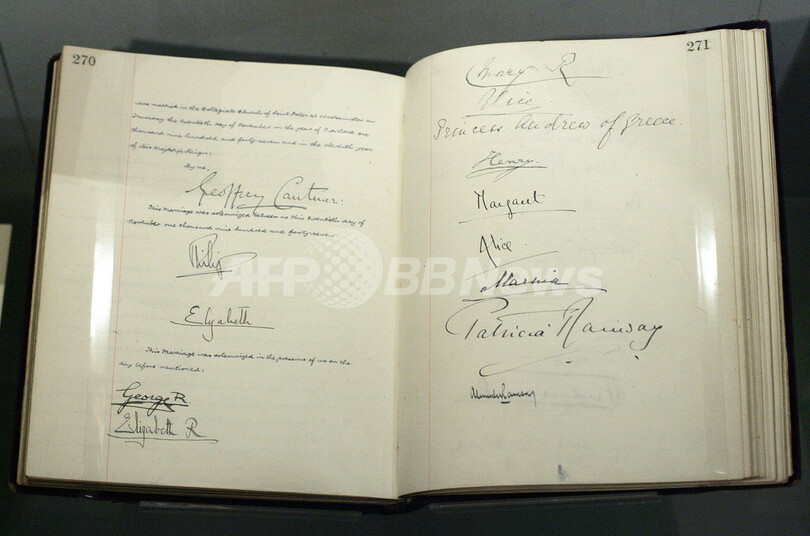 270
was married in the Collegiate Church of Saint Peter at Westminster on
Thursday the twentieth day of November in the year of Our Lord one
thousand nine hundred and forty-seven and in the eleventh year
of His Majesty's Reign:
By me,
Geoffrey Cantuar:
This Marriage was solemnized between us this twentieth day of
November one thousand nine hundred and forty-seven
Philip
Elizabeth
This Marriage was solemnized in the presence of us on the
day before mentioned:
George R
Elizabeth R
271
Mary R
Alice
Princess Andrew of Greece.
Henry.
Margaret
Alice
Marina
Patricia Ramsay
Alexander Ramsay
AFP BBNews